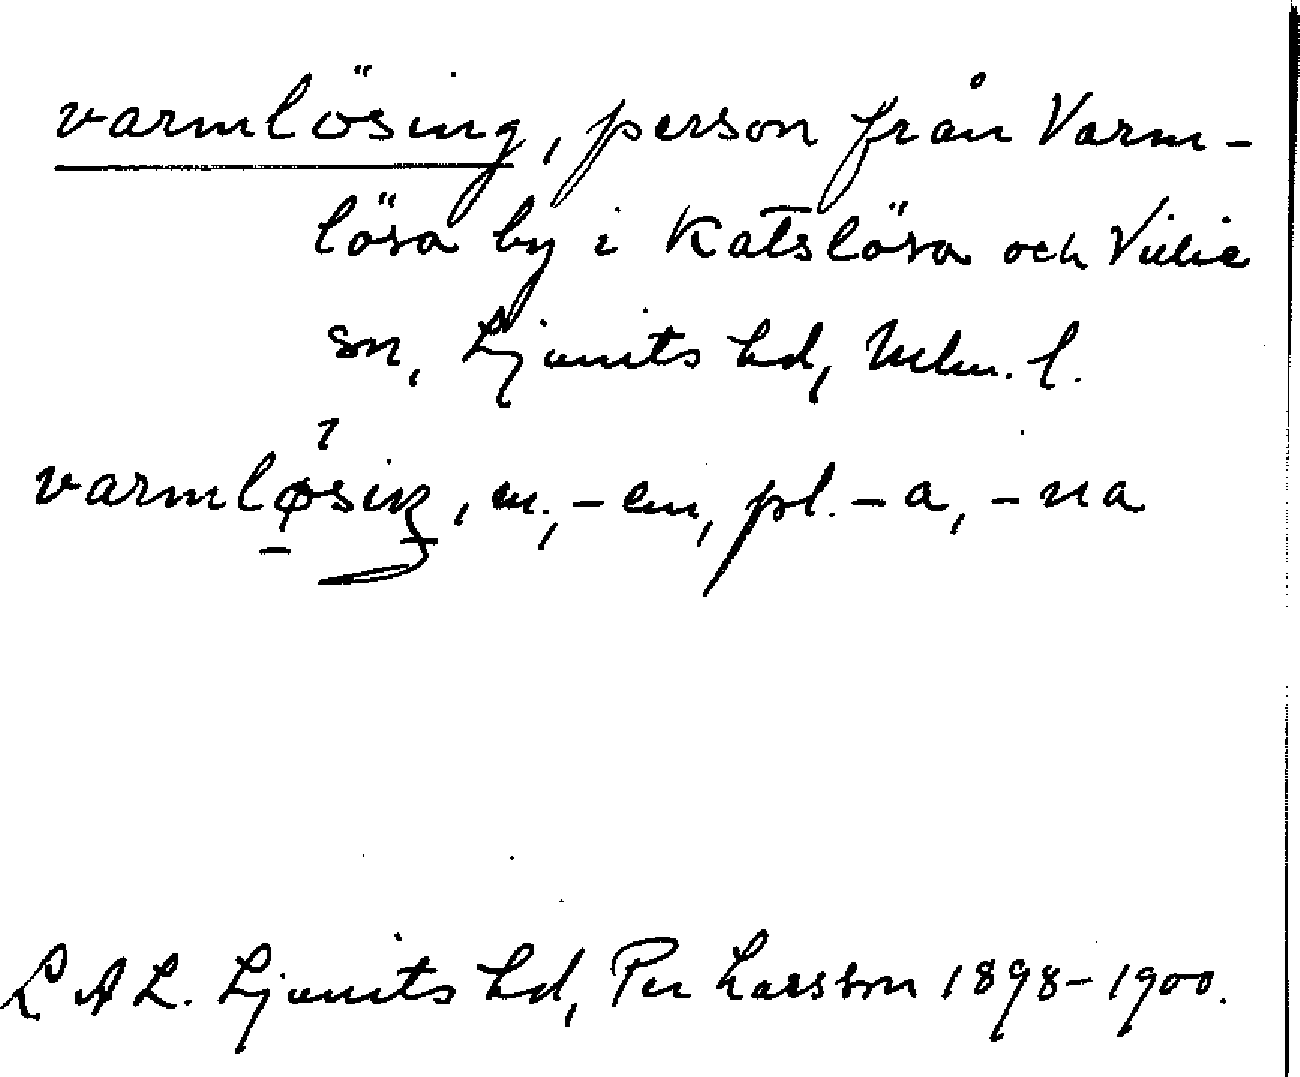 varmlösing, person från Varm-
lösa by i Katslösa och Villie
sn, Ljunits hd, Mlm. l.
varmløsiŋ, m., -en, pl. -a, -na
L A L. Ljunits hd, Per Larsson 1898-1900.